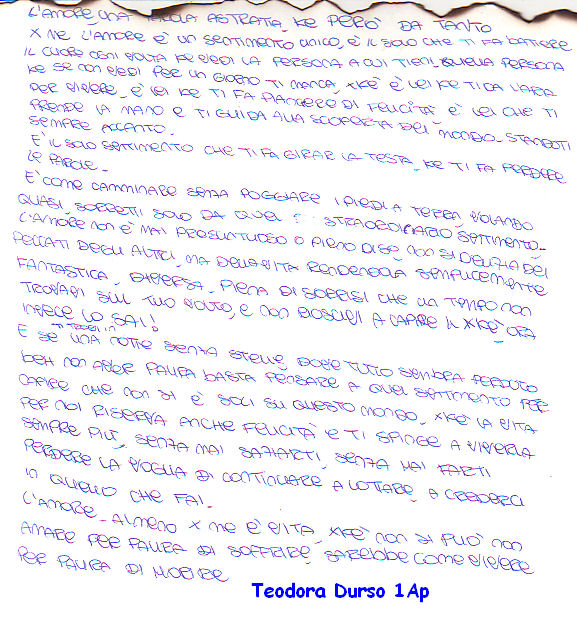 L'AMORE, UNA PAROLA ASTRATTA, KE PERÒ DA TANTO
X ME L'AMORE È UN SENTIMENTO UNICO, È IL SOLO CHE TI FA BATTERE
IL CUORE OGNI VOLTA KE VEDI LA PERSONA A CUI TIENI, QUELLA PERSONA
KE SE NON VEDI PER UN GIORNO TI MANCA, XKÈ È LEI KE TI DA L'ARIA
PER VIVERE, È LEI KE TI FA PIANGERE DI FELICITÀ È LEI CHE TI
PRENDE LA MANO E TI GUIDA ALLA SCOPERTA DEL MONDO STANDOTI
SEMPRE ACCANTO.
È IL SOLO SENTIMENTO CHE TI FA GIRAR LA TESTA, KE TI FA PERDERE
LE PAROLE.
È COME CAMMINARE SENZA POGGIARE I PIEDI A TERRA, VOLANDO
QUASI, SORRETTI SOLO DA QUEL STRAORDINARIO SENTIMENTO.
L'AMORE NON È MAI PRESUNTUOSO O PIENO DI SE, NON SI DELIZIA DEI
PECCATI DEGLI ALTRI, MA DELLA VITA RENDENDOLA SEMPLICEMENTE
FANTASTICA, DIVERSA, PIENA DI SORRISI CHE UN TEMPO NON
TROVAVI SUL TUO VOLTO, E NON RIOSCIVI A CAPIRE IL XKÈ ORA
INVECE LO SAI!
E SE TI TROVI IN UNA NOTTE SENZA STELLE, DOVE TUTTO SEMBRA PERDUTO
BEH NON AVER PAURA BASTA PENSARE A QUEL SENTIMENTO PER
CAPIRE CHE NON SI È SOLI SU QUESTO MONDO, XKÈ LA VITA
PER NOI RISERVA ANCHE FELICITÀ E TI SPINGE A VIVERLA
SEMPRE PIÙ, SENZA MAI SAZIARTI, SENZA MAI FARTI
PERDERE LA VOGLIA DI CONTINUARE A LOTTARE, A CREDERCI
IN QUELLO CHE FAI.
L'AMORE, ALMENO X ME È VITA, XKÈ NON SI PUÒ NON
AMARE PER PAURA DI SOFFRIRE, SAREBBE COME VIVERE
PER PAURA DI MORIRE
Teodora Durso 1Ap